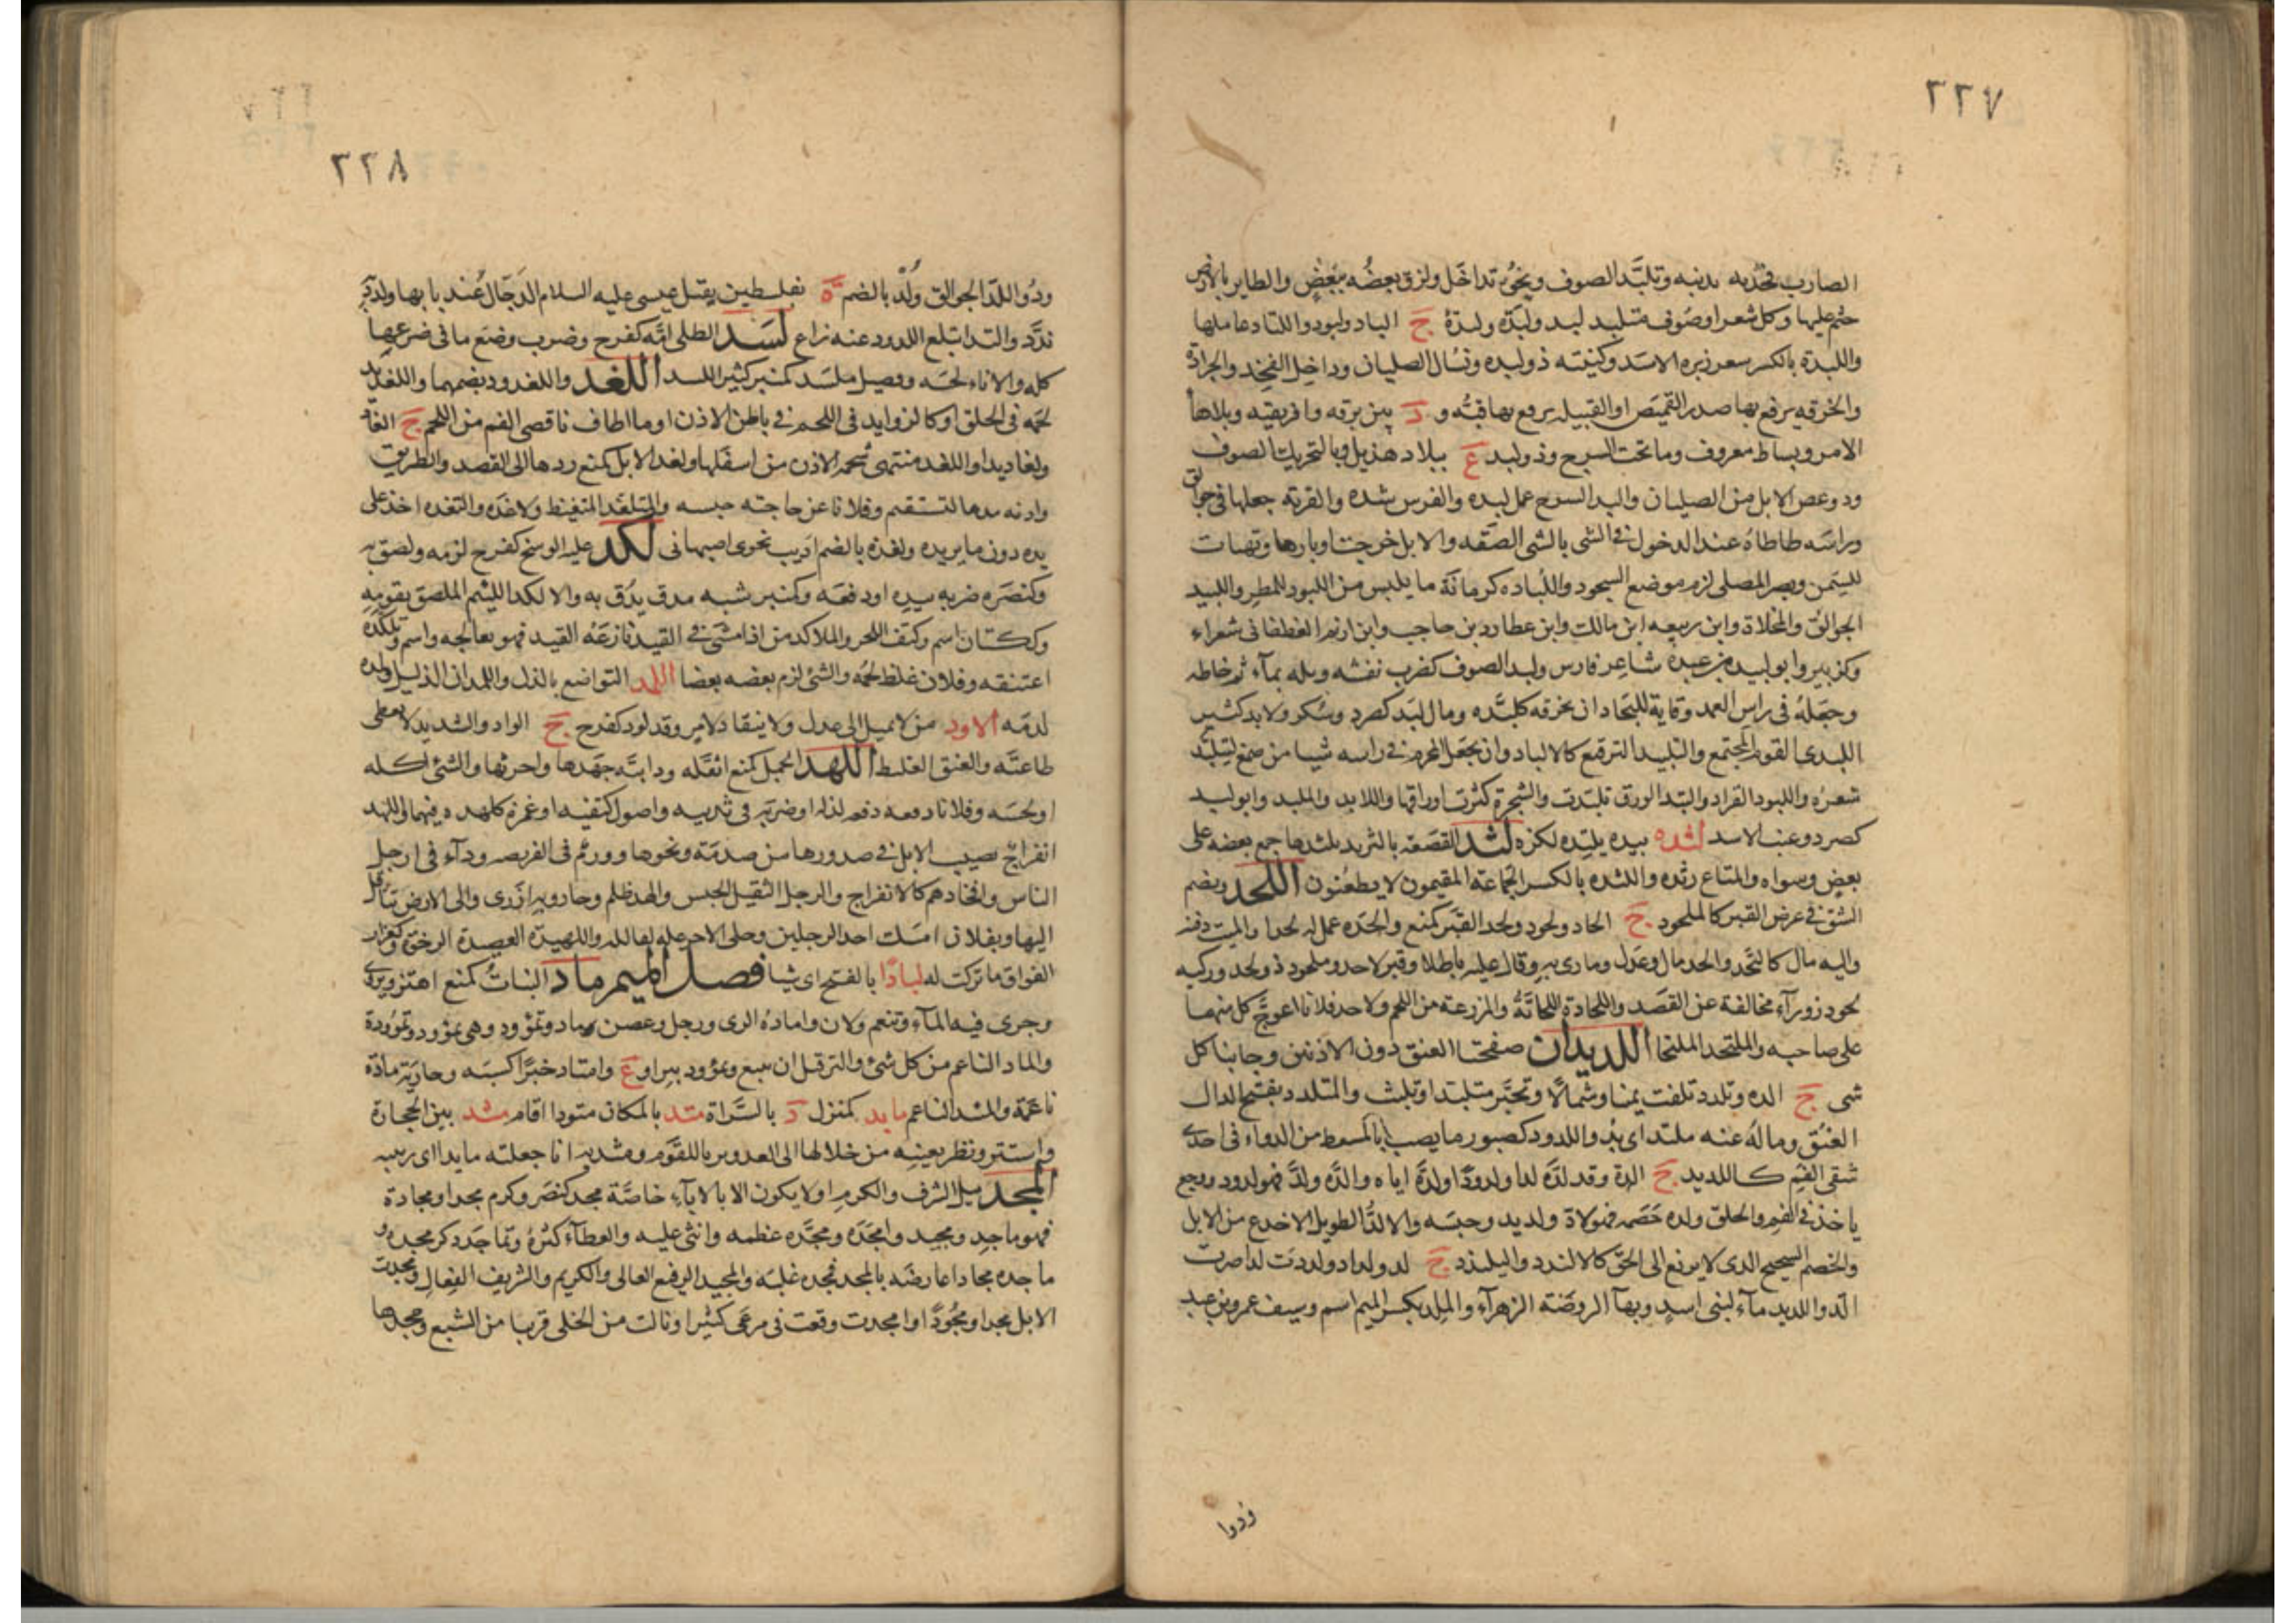 ٢٢٧
الضارب فخذيه بذنبه وتلبَّد الصوف ونحوُه تداخَل ولزق بعضُه ببعضٍ والطاير بالارض
جثم عليها وكل شعر او صوف متلبد لبد ولبدَة ولبدَةُ ج الباد ولبود واللبّاد عاملها
واللبدة بالكسر شعر زبره الاسَد وكنيته ذو لبده ونسال الصليان وداخل الفخِذ والجرادة
والخرقه يرقع بها صدر القميَص او القبيله يرقع بها قبّه و د بين برقه وافريقيه وبلا هاٍ
الامر وبساط معروف وما تحت السرج وذو لبد ع ببلاد هذيل وبالتحريك الصوف
ودوعص الابل من الصليان والبد السرج عمل لبده والفرس شده والقربه جعلها في جوالق
وراسَه طاطاهُ عند الدخول في الشى بالشى الصَقه والابل خرجت اوبارها وتهيات
للسِمن وبصر المصلى لزم موضع السجود واللُباده كرمانَة ما يلبس من اللبود للمطر واللبيد
الجوالق والمخلاة وابن ربيعه ابن مالك وابن عطارد بن حاجب وابن ازنم الغطفانى شعراء
وكزبير وابو لبيد بن عبدة شاعر فارس ولبد الصوف كضرب نفشه وبله بمآء ثم خاطه
وجعَلهُ في راس العمد وقاية للبجاد ان يخرقه كلبَّده ومال لبَد كصرد وسُكر ولا بد كثير
اللبدى القوم المجتمع والتلبيد الترقيع كالالباد وان يجعَل المحرم في راسه شيا من صمغ ليتلبَّد
شعرُه واللبود القراد والتبد الورق تلبّدت والشجرة كثرت اوراقها واللابد والملبد وابو لبد
كصرد وعنب الاسد لتده بيده يلتِده لكزه لثد القصَعة بالثريد يلثدها جمع بعضه على
بعضٍ وسواه والمتاع رثَده واللثده بالكسر الجماعة المقيمون لا يظعُنون اللحد ويضم
الشق في عرض القبر كالملحود ج الحاد ولحود ولحد القبَر كمنع والحَده عمل له لحدا والميت دفنه
واليه مال كالتحَد والحد مال وعَدل ومارى به وقال عليه باطلا وقبر لاحد وملحود ذو لحد وركيه
لحود زورآء مخالفة عن القصَد واللحادة اللحاتَةُ والمزرعة من اللحم ولاحد فلانا اعوجَّ كل منهما
على صاحبه والملتحد الملتجا اللديدان صفحتا العنق دون الاذنين وجانبا كل
شى ج الده وتلدد تلفت يمينا وشمالًا وتحيَّر متلبّدا وتلبث والمتلدد بفتح الدال
العنُق وما لهُ عنه ملتد اى بدُ واللدود كصبور ما يصب بالمسعط من الدواء في احدَى
شقى الفمِ كاللديد ج الدة وقد لدَّه لدا ولدودًا ولدَّة اياه والدَّه ولدَّ فهو لدود ووجع
ياخذ في الفم والحلق ولده خَصَمه فهو لاد ولديد وحبسَه والالدُّ الطويل الاخدع من الابل
والخصم الشحيح الذى لا يزيغ الى الحقَ كالالندد واليلندد ج لد ولداد ولددتَ لدا صرت
الَد واللديد مآء لبنى اسدٍ وبهآ الروضَة الزهرآء والمِلد بكسر الميم اسم وسيف عمرو بن عبد
وُدوا
٢٢٨
ودٍ واللدّ الجوالق ولُدّ بالضم ة بفلسطين يقتل عيسى عليه السلام الدَجّال عُند بابها ولدَّد به
ندَّد والتد ابتلع اللدود عنه زاع لسَد الطلى امَّه كفرح وضرب رضَع ما في ضرعها
كله والاناء لحسَه وفصيل ملسَد كمنبر كثير اللسد اللغد واللغدود بضمهما واللغديد
لحمَه في الحلق او كالزوايد في اللحم في باطن الاذن او ما اطاف باقصى الفم من اللحم ج الغاد
ولغاديد او اللغد منتهى شحمه الاذن من اسفَلها ولغد الابل كمنع ردها الى القصد والطريق
واذنه مدها لتستقيم وفلانا عن حاجته حبسه والمتلغّد المتغيظ ولاغَده والتغده اخذ على
يده دون ما يريده ولغدة بالضم اديب نحوى اصبهانى لكد عليه الوسخ كفرح لزمه ولصق به
وكنصَره ضربه بيده او دفعَه وكمنبر شبه مدق يدَق به والالكد اللئيم الملصق بقومِه
وككتان اسم وكتف اللحز والملاكد من اذا مشى في القيد نازعَهُ القيد فهو يعالجه واسم وتلكّدَه
اعتنقه وفلان غلظ لحمُه والشئ لزم بعضه بعضا اللمد التواضع بالذل واللمدان الذليل ولمده
لدمَه الالود من لا يميل الى عدل ولا ينقاد لامر وقد لود كفرح ج الواد والشديد لا يعطى
طاعتَه والعنق الغليظ اللهد الحمل كمنع اثقَله ودابتَه جهَدها واحرثها والشئ اكله
او لحسَه وفلانا دفعه دفعه لذله او ضربَه في ثدييه واصول كتفيه او غمزه كلهده فيهما واللهد
انفراج يصيب الابل في صدورها من صدمَة ونحوها وورم في الفريصه ودآء في ارجل
الناس وافخاذهم كالانفراج والرجل الثقيل الجبس والهد ظلم وجار وبه ازرى والى الارض تثاقل
اليها وبفلان امسَك احد الرجلين وخلى الاخر عليه يقاتله واللهيدَة العصيدة الرخوَة وكغراب
الفواق ما تركت له لبادًا بالفتح اى شيا فصل الميم ماد النباتُ كمنع اهتز وتروى
وجرى فيه المآء وتنعم ولان وامادهُ الرى ورجل وغصن ماد ويمؤود وهى يمؤود ويمؤودة
والماد الناعم من كل شئ والنز قبل ان ينبع ويمؤود بير او ع وامتاد خيرًا كسبَه وجاريَة مادَة
ناعمَة والمئد الناعم مايد كمنزل د بالسَّراة متد بالمكان متودا اقام مثد بين الحجارة
واستتر ونظر بعينِه من خلالها الى العدو يربا للقوَم ومثدته انا جعلته مايدا اى ربيبه
المجد نيل الشرف والكرم او لا يكون الا بالابآء خاصَّة مجد كنصَر وكرم مجدا ومجادة
فهو ماجد ومجيد وامجدَه ومجَّده عظمه واثنى عليه والعطآء كثرهُ وتماجَدد كر مجده و
ماجده مجادا عارضَه بالمجد فمجده غلبَه والمجيد الرفيع العالى والكريم والشريف الفِعال ومجدت
الابل مجدا ومجُودًا وامجدت وقعت في مرعَى كثير او نالت من الخلى قريبا من الشبع ومجدها